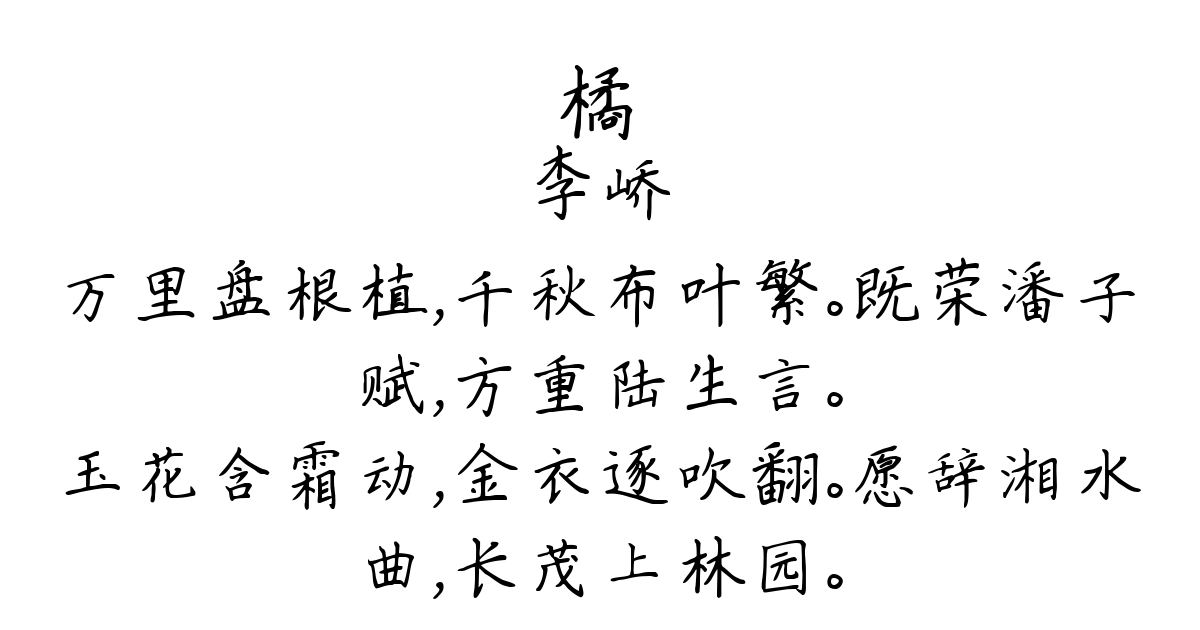 橘
李峤
万里盘根植,千秋布叶繁。既荣潘子
赋,方重陆生言。
玉花含霜动,金衣逐吹翻。愿辞湘水
曲,长茂上林园。